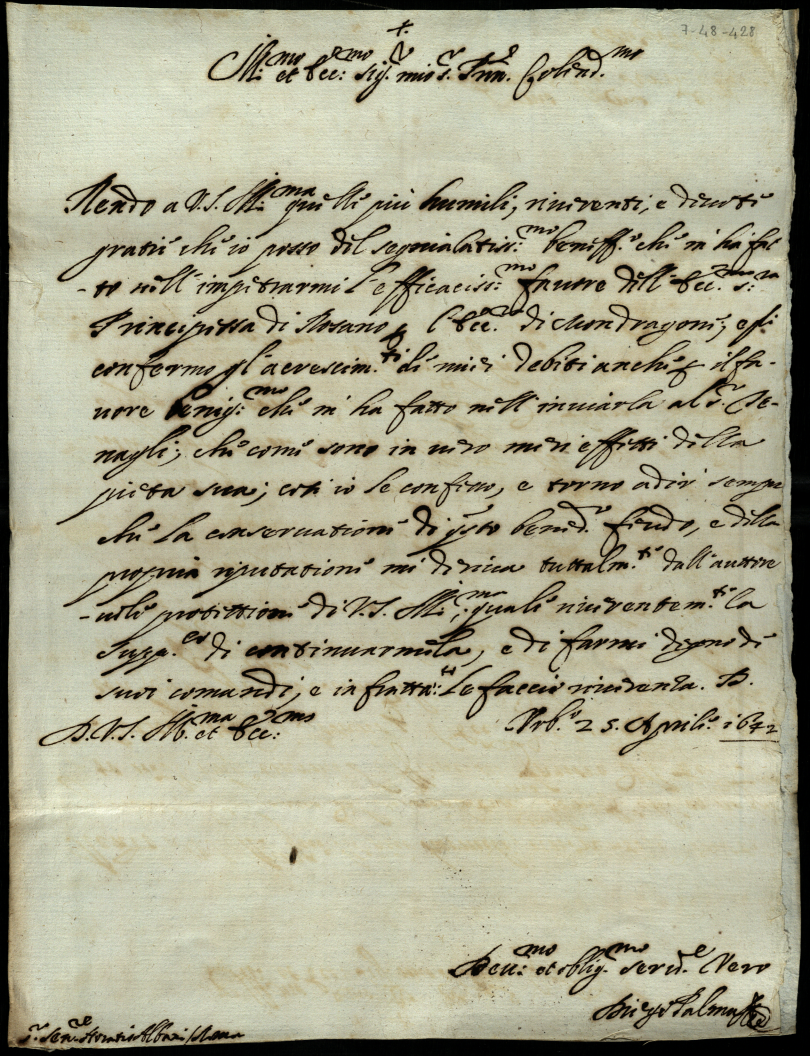 7-48-428
+
Ill.mo et Ecc.mo Sig.r mio S.r Pnn. Colend.mo
Rendo a V.S. Ill.ma quelle più humili, riverenti, e devote
gratie che io posso del segnialatiss.mo beneff.o che m'ha fat
-to nell'impetrarmi l'efficaciss.mo favore dell'Ecc.ma S.ra
Principessa di Rosano p l'Ecc.mo di Mondragone; e li
confermo gl'acrescim.ti di miei debiti anche p il fa-
vore benig.mo che m'ha fatto nell'inviarla al S.r Be-
nagli; che come sono in vero meri effetti della
pietà sua; così io le confesso, e torno a dir sempre
che la conservatione di qsto bened.o feudo, e della
propria riputatione mi deriva tuttalm.te dall'auttore
-vole protettione di V.S. Ill.ma; quale riverentem.te la
supp.co di continuarmela, e di farmi degno di
suoi comandi; e infratta.to Le faccio riverenza. D.
D. V.S. Ill.ma et Ecc.ma Urb.o 25. Aprile 1642
Dev.mo et oblig.mo serv.e Vero
Diego Palma
S.r Sen.re Horatio Albani Roma